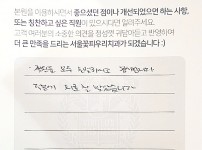 본원을 이용하시면서 좋으셨던 점이나 개선되었으면 하는 사항,
또는 칭찬하고 싶은 직원이 있으시다면 알려주세요.
고객 여러분의 소중한 의견을 칭찬엽 귀담아듣고 반영하여
더 큰 만족을 드리는 서울꽃피우리치과가 되겠습니다 :)
모두 친절하시고
치료 잘 받았습니다